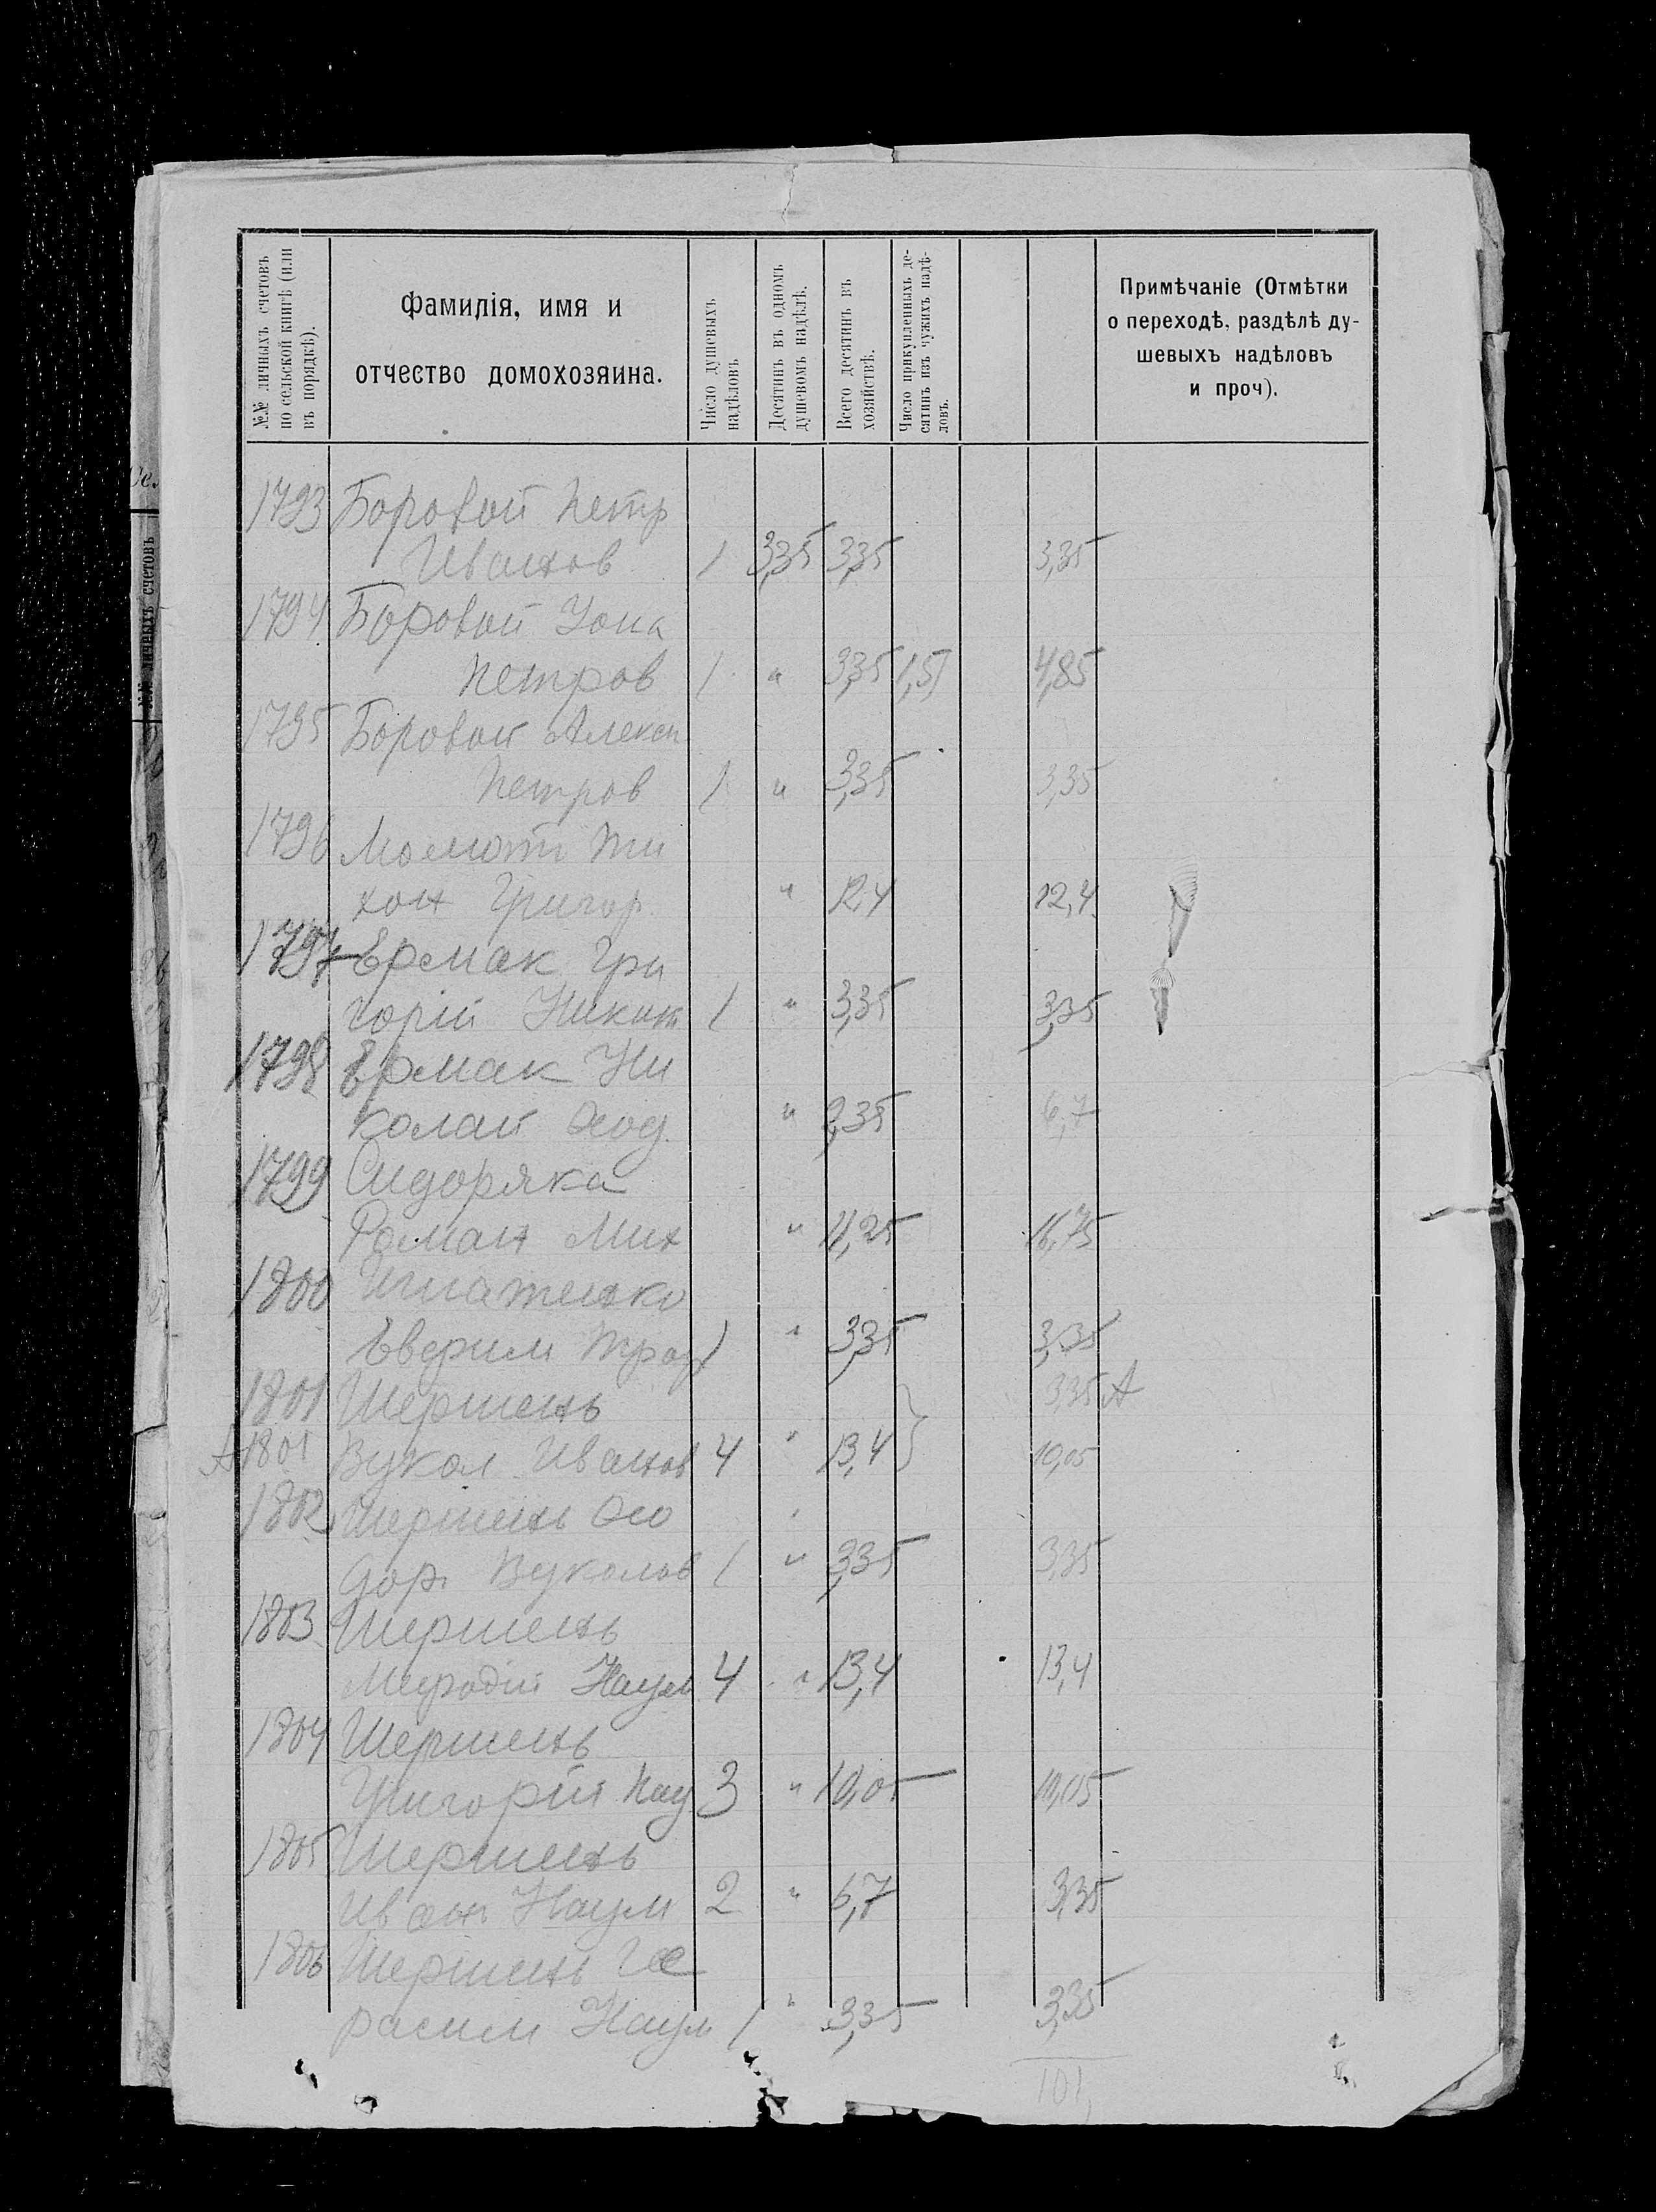 №№ личныхъ счетовъ
по сельской книгѣ (или
въ порядкѣ).
Фамилія, имя и
отчество домохозяина.
Число душевыхъ
надѣловъ.
Десятинъ въ одномъ
душевомъ надѣлѣ.
Всего десятинъ въ
хозяйствѣ.
Число прикупленныхъ де-
сятинъ изъ чужихъ надѣ-
ловъ.
Примѣчаніе (Отмѣтки
о переходѣ, раздѣлѣ ду-
шевыхъ надѣловъ
и проч).
№№ личныхъ счетовъ
1793 Боровой Петр
Иванов 1 3,35 3,35 3,35
1794 Боровой Иона
Петров 1 " 3,35 1,5 4,85
1795 Боровой Алексі
Петров 1 " 3,35 3,35
1796 Момот Ти
хон Григор " 12,4 12,4
1797 Ермак Гри
горій Никит 1 " 3,35 3,35
1798 Ермак Ни
колай " 3,35 6,7
1799 Сидоряка
Роман Мих " 11,25 16,75
1800 Игнатенко
Евфим Троф 1 " 3,35 3,35
1801 Шершень 3,35 А
А 1801 Вукол Иванов 4 " 13,4 } 10,05
1802 Шершень Фео
дор Вуколов 1 " 3,35 3,35
1803 Шершень
Мефодій Наум 4 " 13,4 13,4
1804 Шершень
Григорій Нау 3 " 10,05 10,05
1805 Шершень
Иван Наум 2 " 6,7 3,35
1806 Шершень Ге
расим Наум 1 " 3,35 3,35
101,